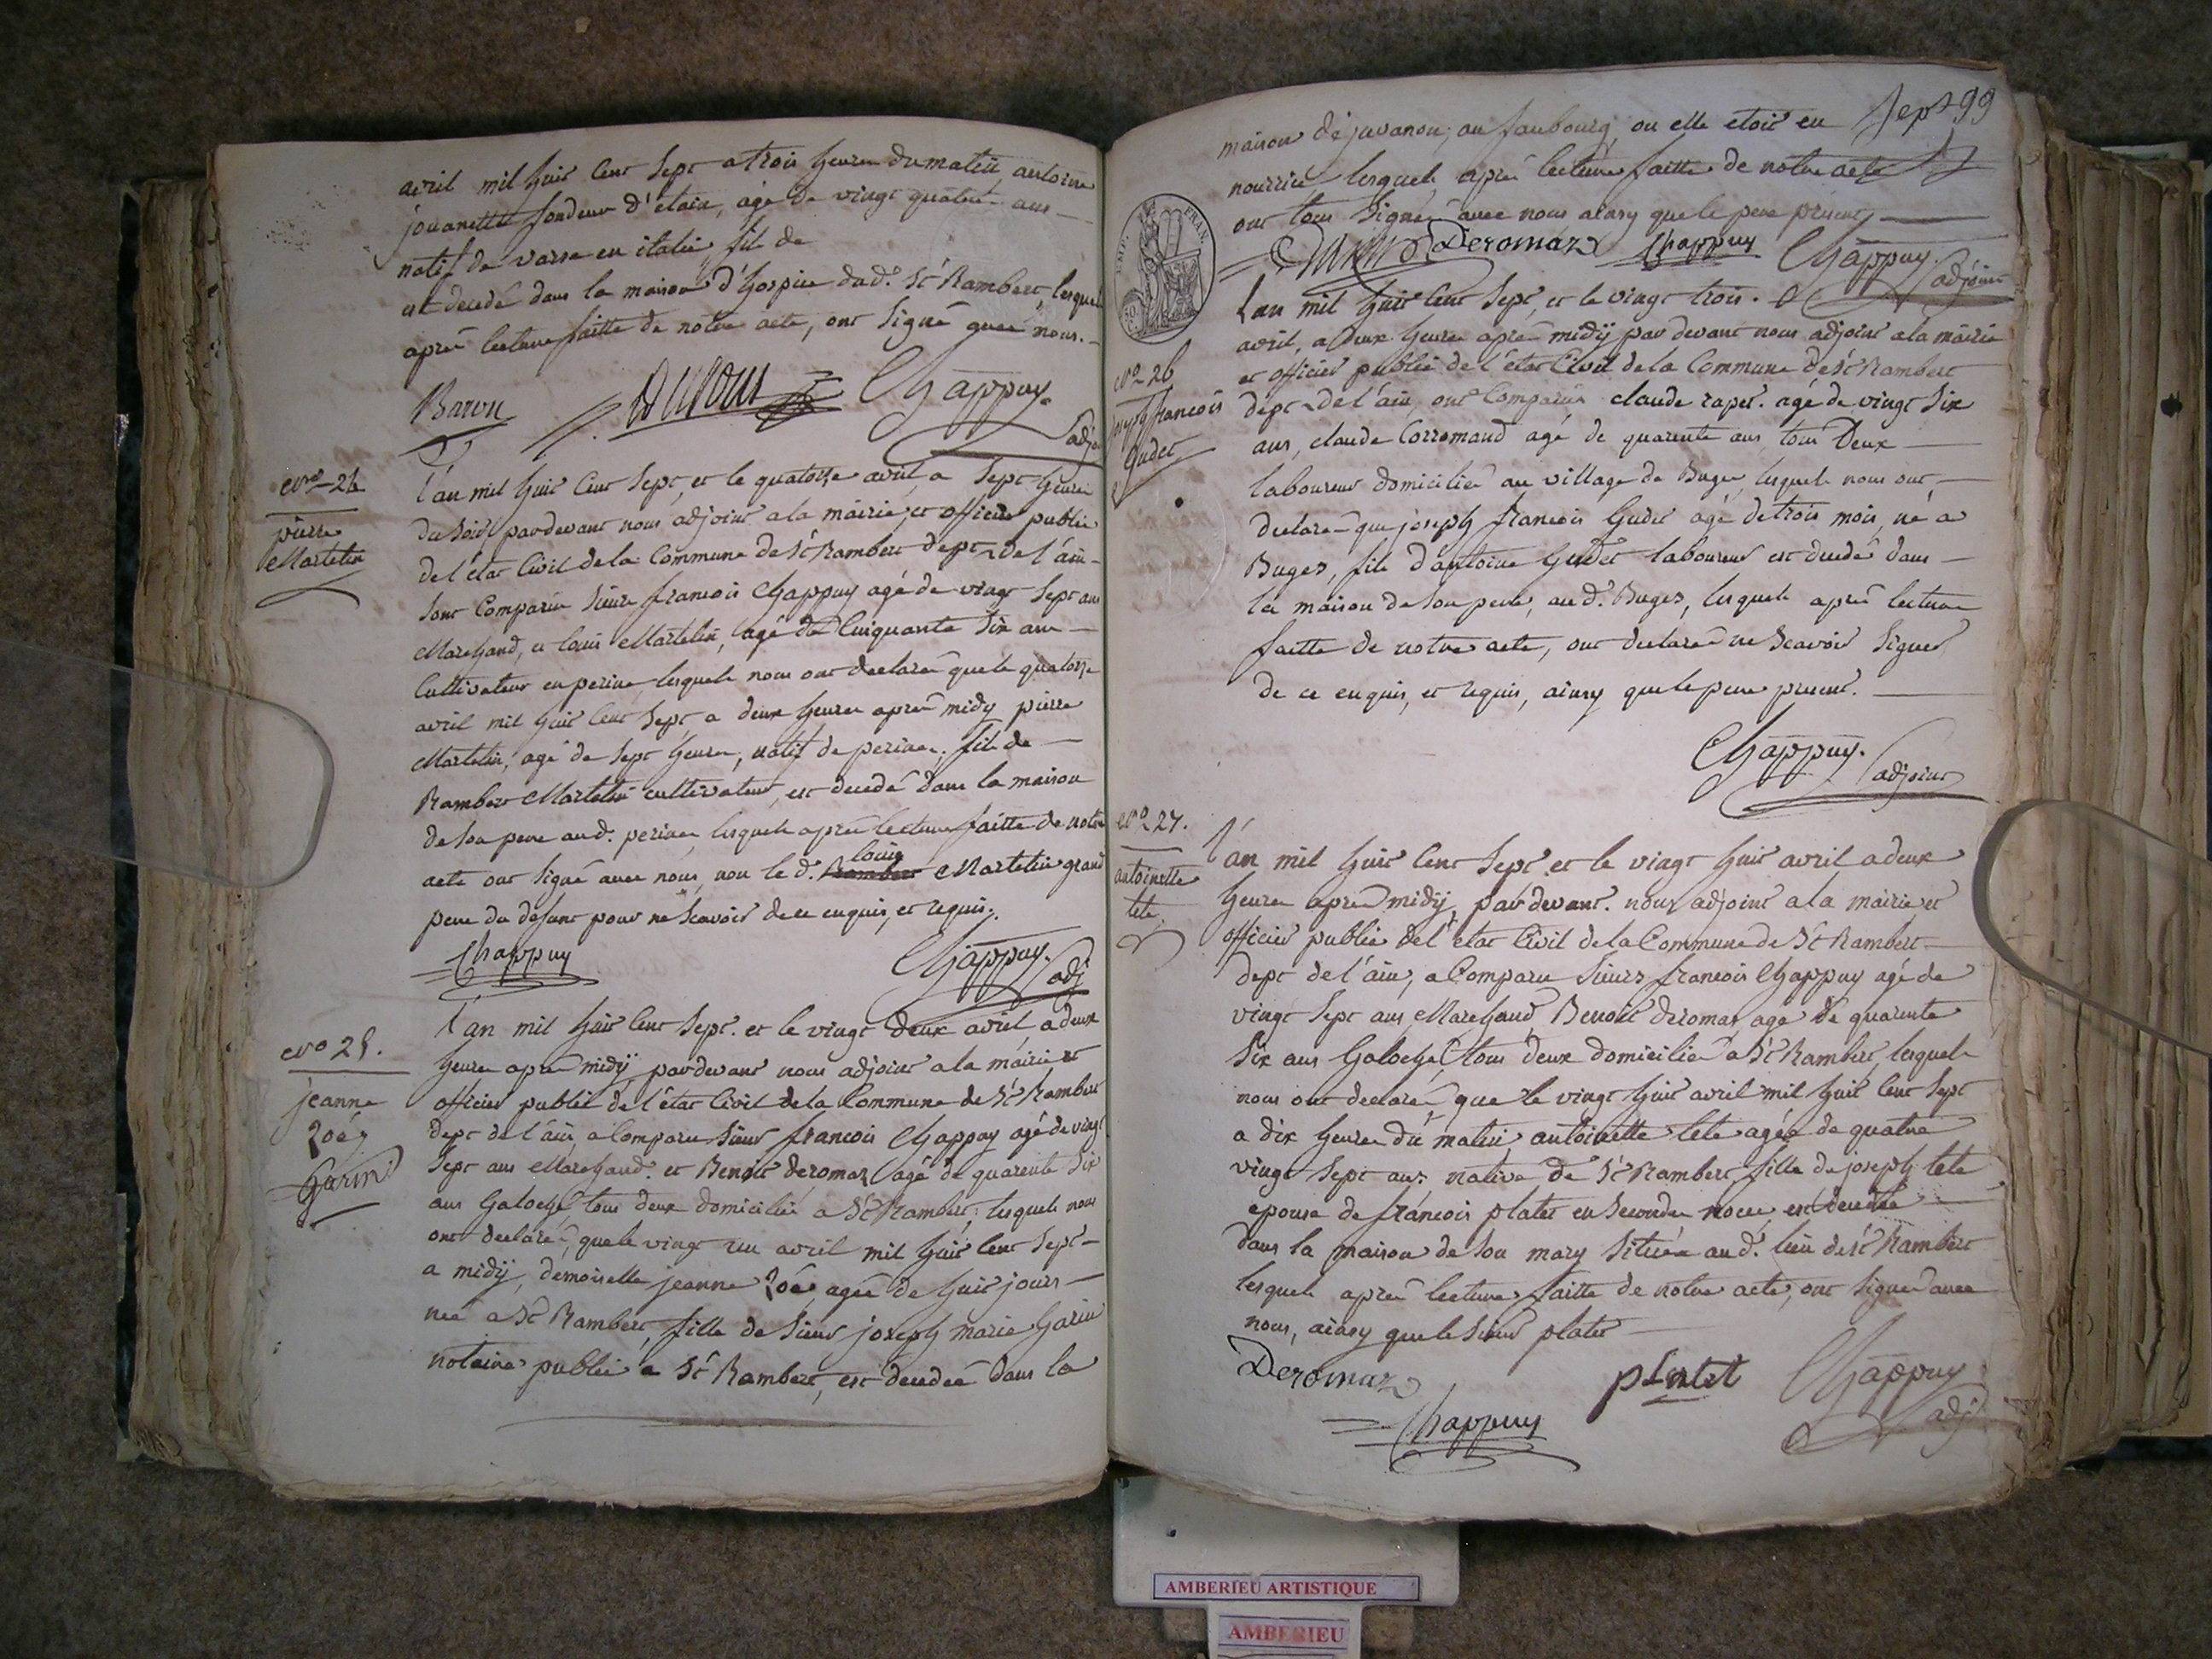 avril mil huit cent sept a trois heures du matin antoine
jouanette fondeur d'etain, agé de vingt quatre ans
natif de varse en italie, fils de
est decedé dans la maison d'hospice dud. St Rambert, lesquels
après lecture faitte de notre acte, ont signé avec nous.
Baron Chappuy adjoint
N° 24
pierre
Martelin
L'an mil huit cent sept, et le quatorze avril, a sept heures
du soir, pardevant nous adjoint a la mairie, et officier public
de l'etat civil de la Commune de St Rambert dept de l'ain
sont comparus sieur francois Chappuy agé de vingt sept ans
Marchand, et louis Martelin, agé de cinquante six ans
Cultivateur en perine, lesquels nous ont declarés que le quatorze
avril mil huit cent sept a deux heures après midy pierre
Martelin, agé de sept heures, natif de perines, fils de
Rambert Martelin cultivateur, est decedé dans la maison
de son pere aud. perines, lesquels après lecture faitte de notre
louis
acte ont signé avec nous, non le d. Rambert Martelin grand
pere du defunt pour ne scavoir de ce enquis, et requis.
Chappuy Chappuy adj
N° 25.
jeanne
Zoé
Garin
L'an mil huit cent sept. et le vingt deux avril, a deux
heures après midy, pardevant nous adjoint a la mairie et
officier public de l'etat Civil de la Commune de St Rambert
dept de l'ain, a comparu sieur francois Chappuy agé de vingt
sept ans Marchand. et Benoit deromaz agé de quarente six
ans Galoché, tous deux domiciliés a St Rambert; lesquels nous
ont declarés, que le vingt un avril mil huit cent sept
a midy, demoiselle jeanne Zoé agée de huit jours
née a St Rambert, fille de sieur joseph marie Garin
notaire public a St Rambert, est decedée dans la
Sept 99
maison de juvanon, au faubourg ou elle etoit en
nourrice lesquels après lecture faitte de notre acte
ont tous signés avec nous ainsy que le pere present,
Garin Deromaz Chappuy Chappuy adjoint
L'an mil huit cent sept, et le vingt trois.
N° 26
joseph francois
Gudet
avril, a deux heures après midy par devant nous adjoint a la mairie
et officier public de l'etat Civil de la Commune de St Rambert
dept de l'ain, ont comparus claude rapet. agé de vingt six
ans, claude Corromand agé de quarente ans, tous deux
laboureurs domiciliés au village de Buges, lesquels nous ont
declaré que joseph francois Gudet agé de trois mois, né a
Buges, fils d'antoine Gudet laboureur est decedé dans
la maison de son pere, aud. Buges, lesquels après lecture
faitte de notre acte, ont declarés ne scavoir signer
de ce enquis, et requis, ainsy que le pere present.
Chappuy. adjoint
N° 27.
antoinette
tete.
L'an mil huit cent sept, et le vingt huit avril a deux
heures après midy, par devant. nous adjoint a la mairie et
officier public de l'etat Civil de la Commune de St Rambert
dept de l'ain, a comparu sieurs francois Chappuy agé de
vingt sept ans Marchand, Benoit deromas, agé de quarente
six ans Galoché, tous deux domiciliés a St Rambert, lesquels
nous ont declarés, que le vingt huit avril mil huit cent sept
a dix heures du matin antoinette tete agée de quatre
vingt sept ans. native de St Rambert, fille de joseph tete
epouse de francois platet en seconde noce, est decedée
dans la maison de son mary située aud. lieu de St Rambert
lesquels après lecture faitte de notre acte, ont signés avec
nous, ainsy que le sieur platet
Deromaz platet Chappuy adj
Chappuy
AMBERIEU ARTISTIQUE
AMBERIEU